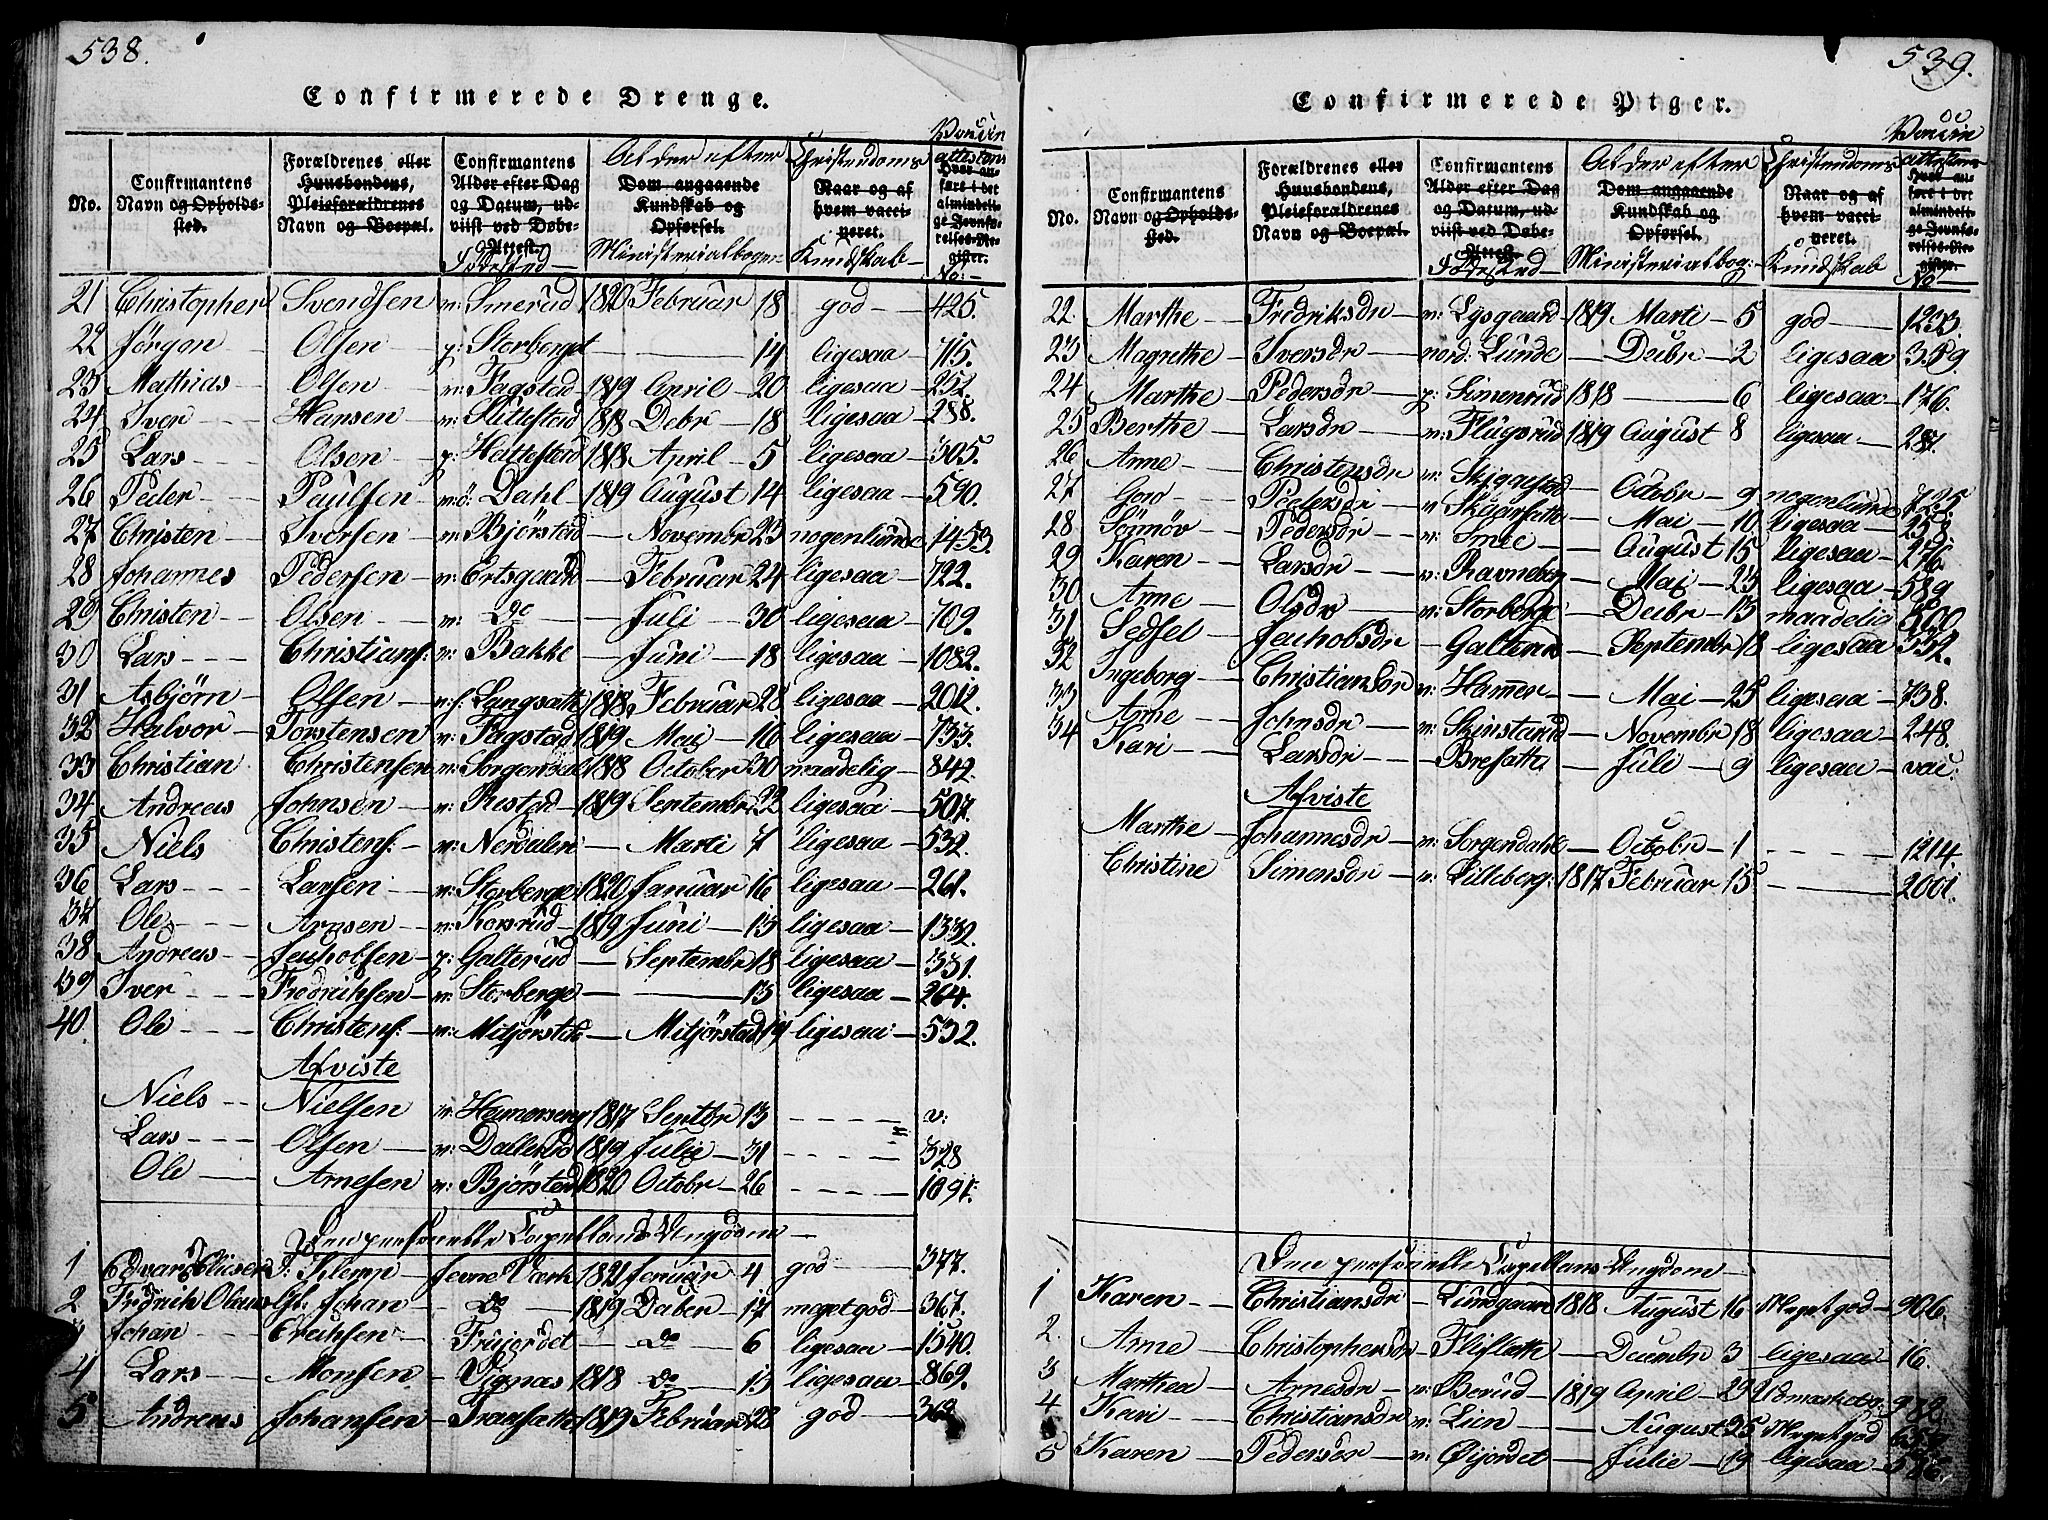 538.
Confirmerede Drenge.
No.
Confirmantens Navn og Opholdssted.
Forældrenes eller Huusbondens, Pleieforældrenes Navn og Boepæl.
Confirmantens Alder efter Dag og Datum, udviist ved Døbe-Attest.
Fødested
Alder efter
Dom angaaende Kundskab og Opførsel.
Ministerialbogen
Christendoms
Naar og af hvem vaccineret.
Kundskab
Vaccin attestens
Hvor anført i det almindelige Jevnførelses-Register.
No:
21 Christopher Svendsen v: Smerud 1820 Februar 18 god 425.
22 Jørgen Olsen p: Storberget — 14 ligesaa 715.
23 Mathias Olsen v: Fagstad 1819 April 20 ligesaa 252.
24 Iver Hansen v: Kittestad 1818 Debr 18 ligesaa 288.
25 Lars Olsen p: Hattestad 1818 April 5 ligesaa 305.
26 Peder Paulsen v: ö: Dahl 1819 August 14 ligesaa 590.
27 Christen Iversen v: Bjørstad — Novembr 23 nogenlunde 1453.
28 Johannes Pedersen v: Ertsgaard — Februar 24 ligesaa 722.
29 Christen Olsen v: Do — Juli 30 ligesaa 709.
30 Lars Christians: v: Bakke — Juni 18 ligesaa 1082.
31 Asbjørn Olsen v. f. Langsæth 1818 Februar 28 ligesaa 2012.
32 Halvor Torstensen v: Fagstad 1819 Mai 16 ligesaa 733.
33 Christian Christensen v: Sorgendal 1818 October 30 maadelig 842.
34 Andreas Johnsen v: Restad 1819 Septembr 22 ligesaa 507.
35 Niels Christens: v: Nerdalen — Marti 7 ligesaa 532.
36 Lars Larsen v: Storberge 1820 Januar 16 ligesaa 261.
37 Ole Arnsen v: Korsrud 1819 Juni 13 ligesaa 1332.
38 Andreas Jachobsen p: Galterud — Septembr 18 ligesaa 331.
39 Iver Fredrichsen v: Storberge — — 13 ligesaa 264.
40. Ole Christens: v: Mitjørstad — Mitjørstad 19 ligesaa 532.
Afviste
Niels Nielsen v: Hamerseng 1817 Septbr 13 v:
Lars Olsen v: Dallerud 1819 Julie 31 328
Ole Arnesen v: Bjørstad 1820 Octobr 26 1091.
Den personelle Capellans Ungdom
1 Edvard Elieser I: Klemp Jevne Værk 1821 Januar 4 god 377.
2 Fridrik Olaus Johan Do 1819 Daber 17 meget god 367.
3 Johan Erichsen Fruejordet Do 6 ligesaa 1540.
4 Lars Monsen Vignæs 1818 do 13 ligesaa 869.
5 Andreas Johansen Transætt 1819 Februar 28 god 362
539.
Confirmerede Piger.
No.
Confirmantens Navn og Opholdssted.
Forældrenes eller Huusbondens, Pleieforældrenes Navn og Boepæl.
Confirmantens Alder efter Dag og Datum, udviist ved Døbe-Attest.
Fødested
Alder efter
Dom angaaende Kundskab og Opførsel.
Ministerialbog:
Christendoms
Naar og af hvem vaccineret.
Kundskab
Vaccin attestens
Hvor anført i det almindelige Jevnførelses-Register.
No
22. Marthe Fredriksdr v: Lysgaard 1819 Marti 5 god 1233.
23 Magrethe Iversdr nord: Lunde — Decbr 2 ligesaa 359
24 Marthe Pedersdr p: Simenrud 1818 — 6 ligesaa 176.
25 Berthe Larsdr v: Flugsrud 1819 August 8 ligesaa 287.
26 Anne Christensdr v: Skigenstad — Octobr 9 nogenlunde 725.
27 Goro Pedersdr v Skuarsætt — Mai 10 ligesaa 258.
28 Sönnöv Pedersdr v: Smee — August 15 ligesaa 276.
29 Karen Larsdr v: Ravneberg — Mai 23 ligesaa 589
30 Anne Olsdr v: Storberge — Decbr 13 maadelig 500
31 Sedsel Jachobsdr Galterud — Septembr 18 ligesaa 332.
32 Ingeborg Christiansdr v: Hamer — Mai 25 ligesaa 738.
33 Anne Johnsdr v: Skinstand — Novembr 18 ligesaa 248.
34 Kari Larsdr Bresætt — Juli 9 ligesaa vac:
Afviste
Marthe Johannesdr v: Sorgendahl — Octobr 1 1214.
Christine Simensdr v: Lilleberg: 1817 Februar 15 2001.
Den personelle Capellans Ungdom
1 Karen Christiansdr Lundgaard 1818 August 16 Meget god 906.
2. Anne Christophersdr Flisløth — Decembr 3 ligesaa 16.
3 Marthea Arnesdr v: Borud 1819 April 29 Udmærket g: 982.
4 Kari Christiansdr v: Lien — August 25 Meget god
5 Karen Pedersdr v: Øijordet — Julie 19 ligesaa 586.